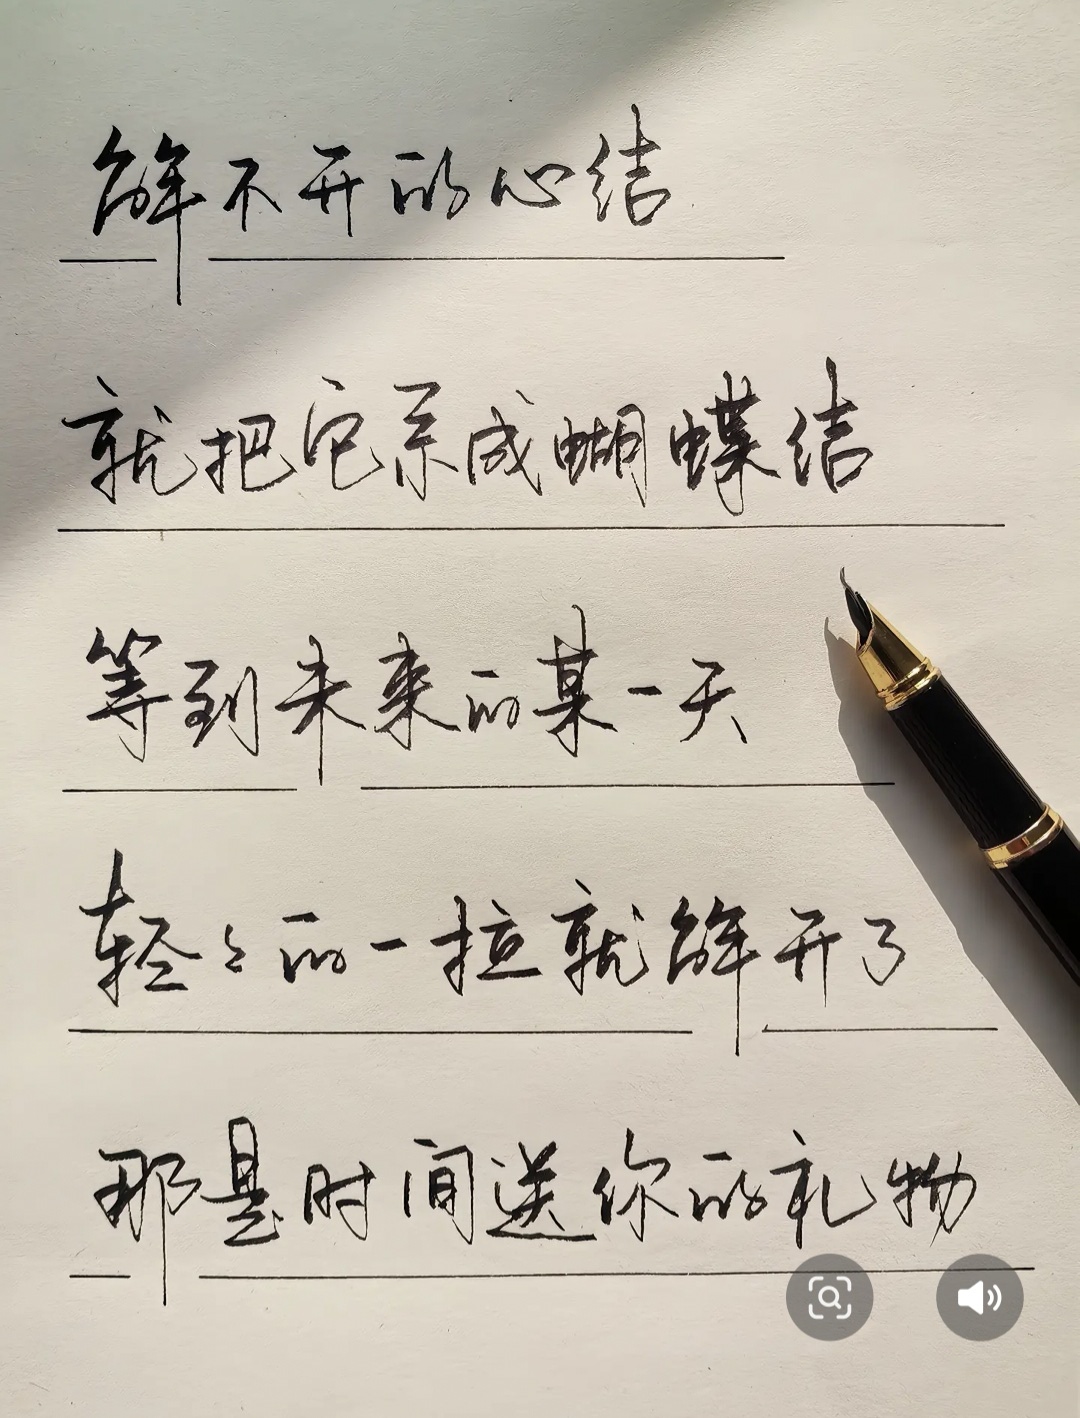 解不开的心结
就把它系成蝴蝶结
等到未来的某一天
轻轻的一拉就解开了
那是时间送你的礼物